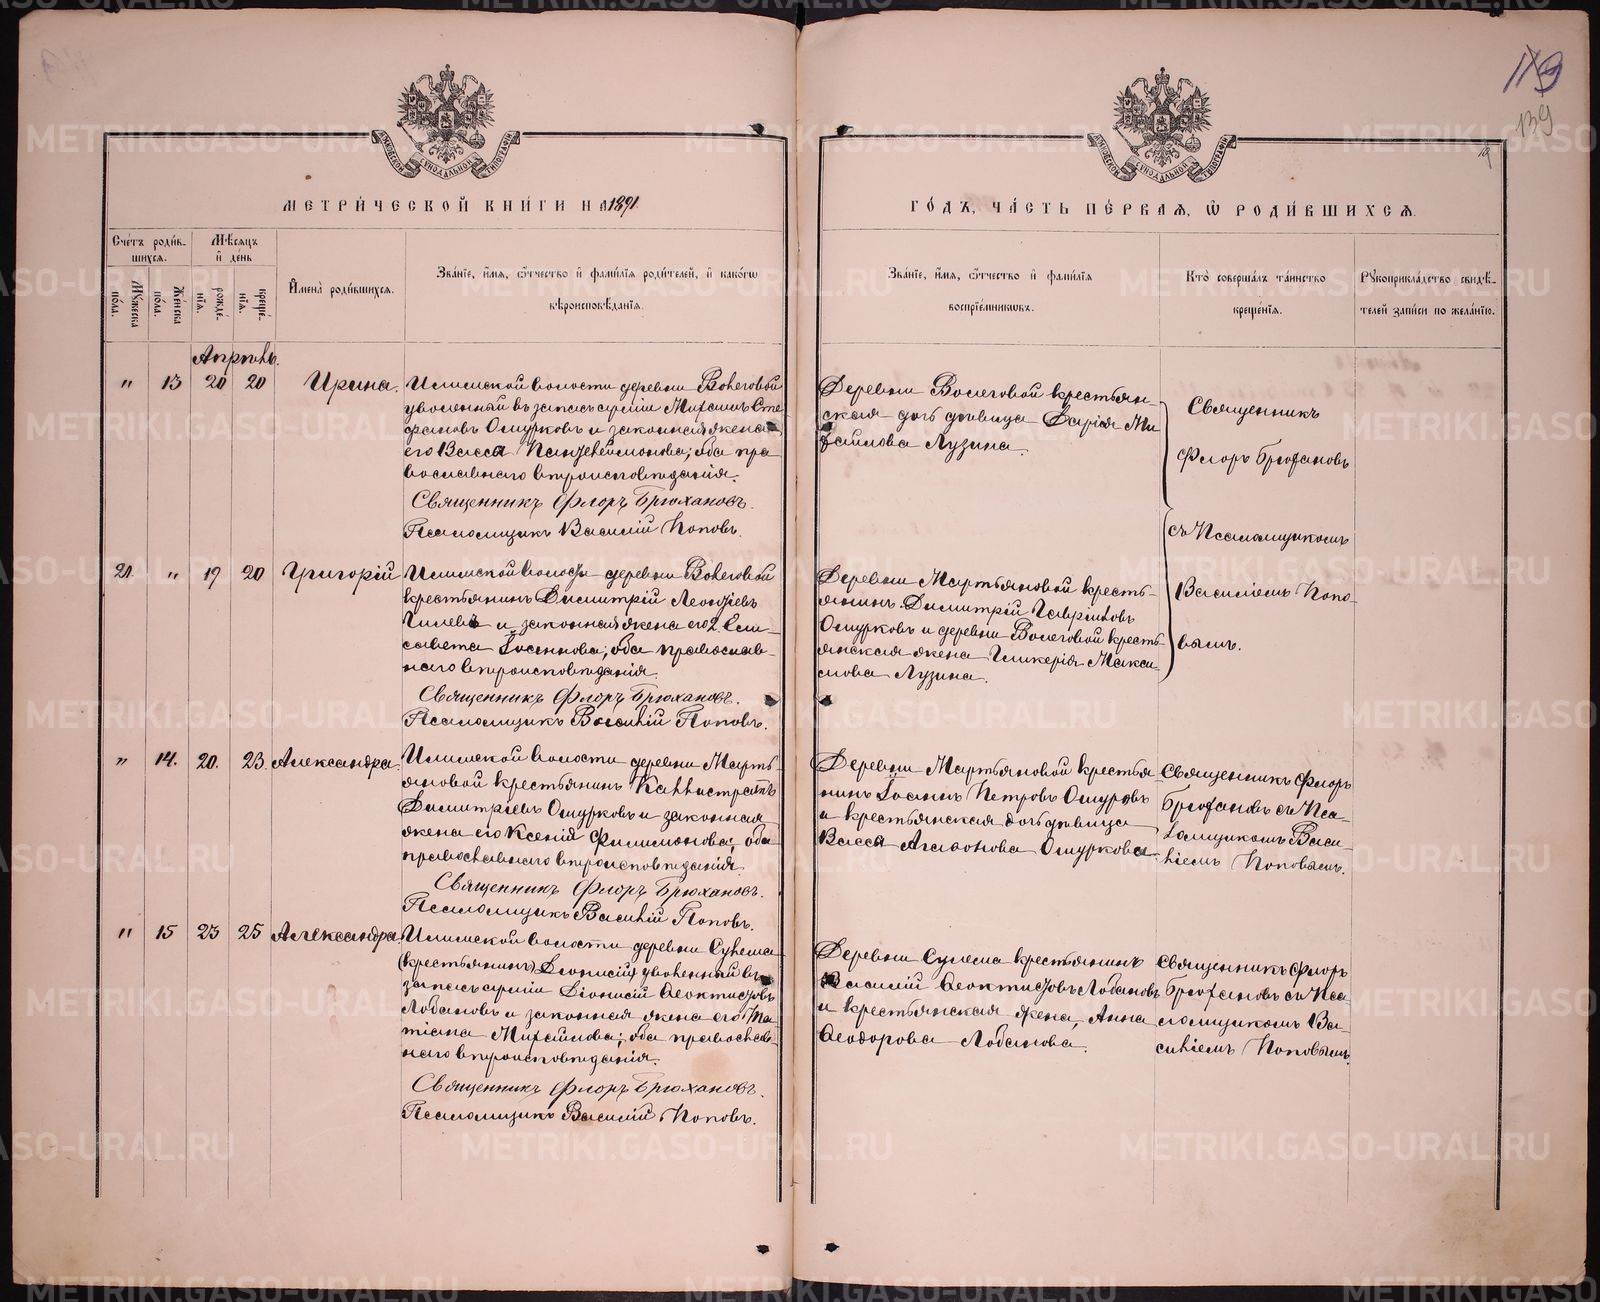 139
МЕТРИЧЕСКОЙ КНИГИ НА 1891
ГОДЪ, ЧАСТЬ ПЕРВАЯ, Ѡ РОДИВШИХСЯ.
Счетъ родив-
шихся.
Мужеска
пола.
Женска
пола.
Мѣсяцъ
и день
рожде-
нія.
креще-
нія.
Имена родившихся.
Званіе, имя, ѿчество и фамилія родителей, и какогѡ
вѣроисповѣданія.
Званіе, имя, ѿчество и фамилія
воспріемниковъ.
Кто совершалъ таинство
крещенія.
Рукоприкладство свидѣ-
телей записи по желанію.
Апрѣль.
" 13 20 20 Ирина.
Илимской волости деревни Волеговой
уволенный въ запасъ арміи Михаилъ Сте-
фановъ Ошурковъ и законная жена
его Васса Пантелеимонова; оба пра-
вославнаго вѣроисповѣданія.
Священникъ Флоръ Брюхановъ.
Псаломщикъ Василій Поповъ.
Деревни Волеговой крестьян-
ская дочь дѣвица Дарія Ми-
хаилова Лузина.
Священникъ
Флоръ Брюхановъ
съ Псаломщикомъ
Василіемъ Попо-
вымъ.
21. " 19 20 Григорій
Илимской волости деревни Волеговой
крестьянинъ Димитрій Леонтіевъ
Гилевъ и законная жена его 2 Ели-
савета Іосифова; оба православ-
наго вѣроисповѣданія.
Священникъ Флоръ Брюхановъ.
Псаломщикъ Василій Поповъ.
Деревни Мартьяновой кресть-
янинъ Димитрій Гавріиловъ
Ошурковъ и деревни Волеговой кресть-
янская жена Гликерія Макси-
мова Лузина.
" 14. 20. 23. Александра.
Илимской волости деревни Марть-
яновой крестьянинъ Каллистратъ
Димитріевъ Ошурковъ и законная
жена его Ксенія Филимонова; оба
православнаго вѣроисповѣданія
Священникъ Флоръ Брюхановъ.
Псаломщикъ Василій Поповъ.
Деревни Мартьяновой крестья
нинъ Іоаннъ Петровъ Ошурковъ
и крестьянская дочь дѣвица
Васса Агафонова Ошуркова.
Священникъ Флоръ
Брюхановъ съ Пса-
ломщикомъ Васи-
ліемъ Поповымъ.
" 15 23 25 Александра.
Илимской волости деревни Сулема
(крестьянинъ) Діонисій уволенный въ
запасъ арміи Діонисій Ѳеоктистовъ
Лобановъ и законная жена его Та-
тіана Михаилова; оба православ-
наго вѣроисповѣданія.
Священникъ Флоръ Брюхановъ.
Псаломщикъ Василій Поповъ.
Деревни Сулема крестьянинъ
Василій Ѳеоктистовъ Лобановъ
и крестьянская жена, Анна
Ѳеодорова Лобанова.
Священникъ Флоръ
Брюхановъ съ Пса
ломщикомъ Ва-
силіемъ Поповымъ.
METRIKI.GASO-URAL.RU